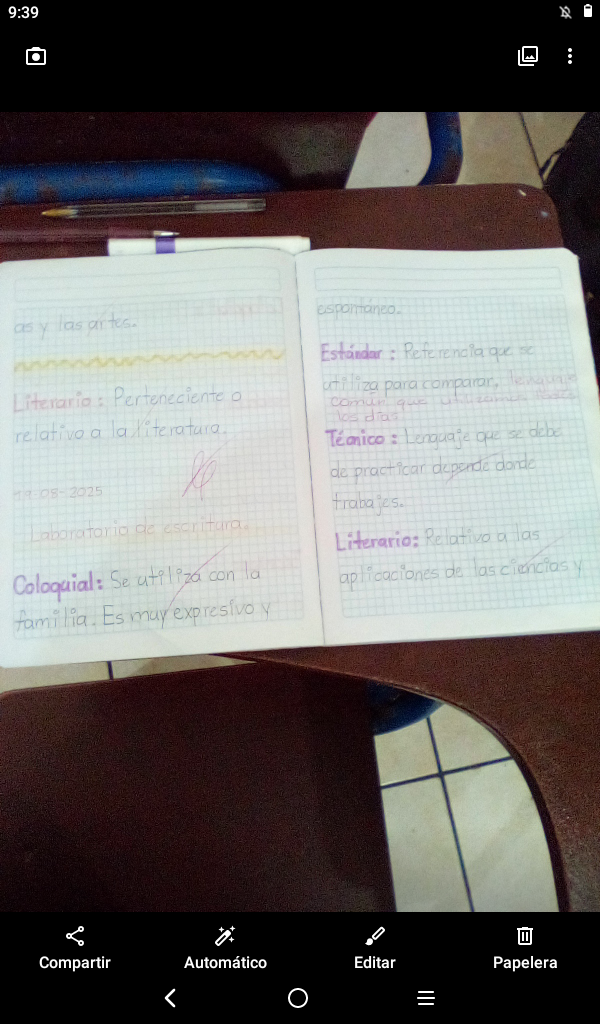 9:39
as y las artes.
Literario: Perteneciente o
relativo a la literatura.
-08-2025
Laboratorio de escritura.
Coloquial: Se utiliza con la
familia. Es muy expresivo y
espontáneo.
Estándar: Referencia que se
utiliza para comparar, lenguaje
común que utilizamos todos
los días.
Técnico: Lenguaje que se debe
de practicar depende donde
trabajes.
Literario: Relativo a las
aplicaciones de las ciencias y
Compartir
Automático
Editar
Papelera